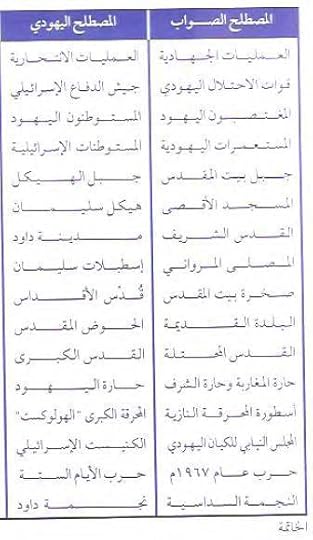 المصطلح الصواب المصطلح اليهودي
العمليات الجهادية العمليات الانتحارية
قوات الاحتلال اليهودي جيش الدفاع الإسرائيلي
المغتصبون اليهود المستوطنون اليهود
المستعمرات اليهودية المستوطنات الإسرائيلية
جبل بيت المقدس جبل الهيكل
المسجد الأقصى هيكل سليمان
القدس الشريف مدينة داود
المصلى المرواني إسطبلات سليمان
صخرة بيت المقدس قُدْس الأقداس
البلدة القديمة الحوض المقدس
القدس المحتلة القدس الكبرى
حارة المغاربة وحارة الشرف حارة اليهود
أسطورة المحرقة النازية المحرقة الكبرى "الهولوكست"
المجلس النيابي للكيان اليهودي الكنيست الإسرائيلي
حرب عام ١٩٦٧م حرب الأيام الستة
النجمة السداسية نجمة داود
الخاتمة